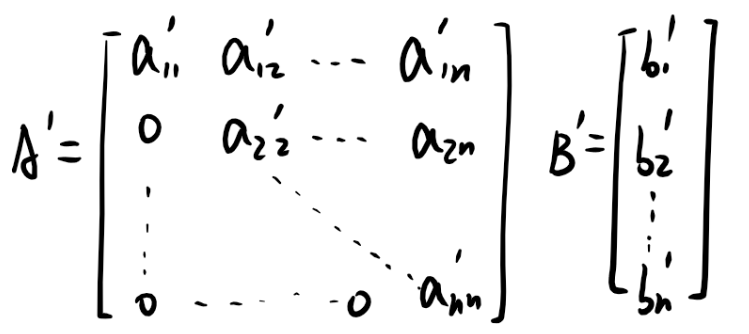 A' = [ a'₁₁ a'₁₂ ... a'₁ₙ ; 0 a'₂₂ ... a₂ₙ ; ⋮ ⋱ ; 0 ... 0 a'ₙₙ ] B' = [ b₁' ; b₂' ; ⋮ ; bₙ' ]